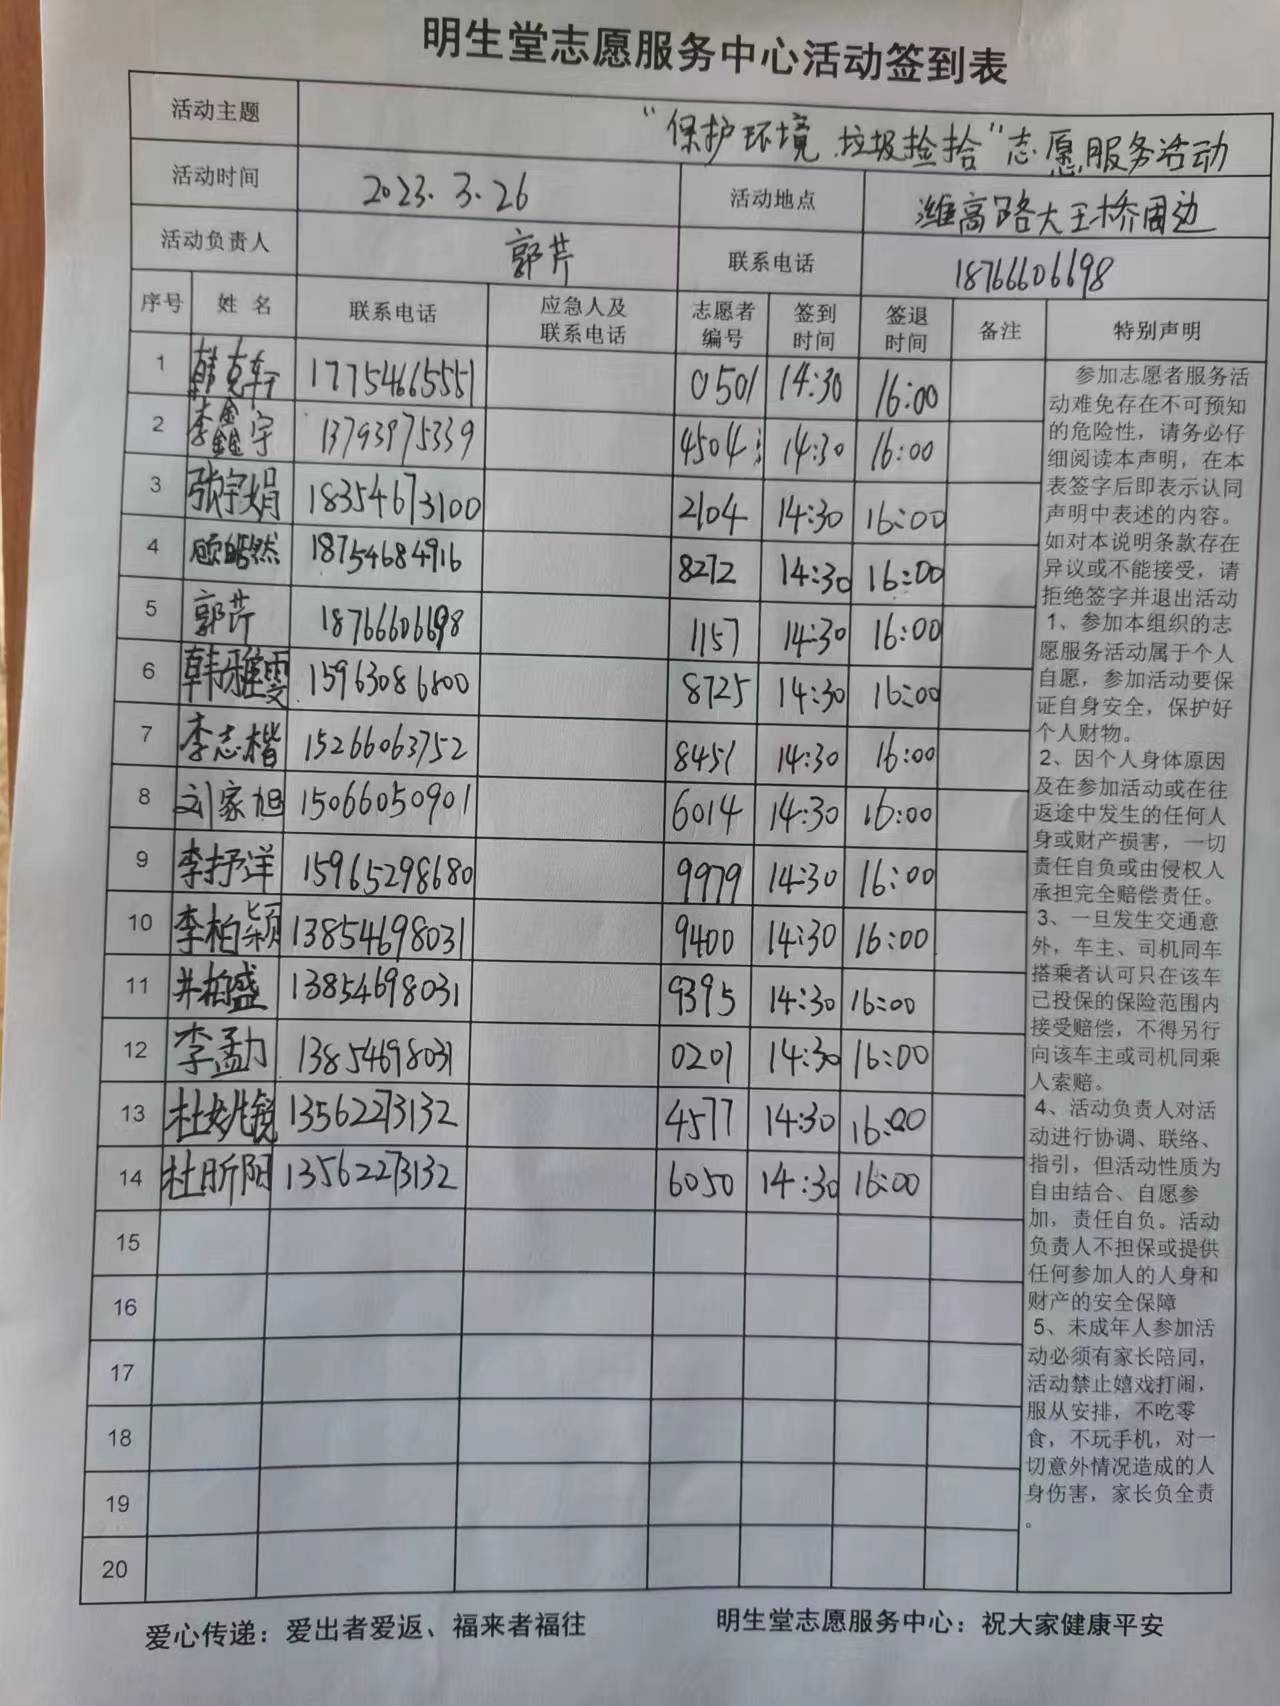 明生堂志愿服务中心活动签到表
活动主题 “保护环境 垃圾捡拾”志愿服务活动
活动时间 2023.3.26 活动地点 潍高路大王桥周边
活动负责人 郭芹 联系电话 18766606698
序号 姓 名 联系电话 应急人及联系电话 志愿者编号 签到时间 签退时间 备注 特别声明
1 韩克轩 17754665551 0501 14:30 16:00
2 李鑫宇 13793975339 4504 14:30 16:00
3 张宇娟 18354673100 2104 14:30 16:00
4 顾皓然 18754684916 8272 14:30 16:00
5 郭芹 18766606698 1157 14:30 16:00
6 韩雅雯 15963086800 8725 14:30 16:00
7 李志楷 15266063752 8451 14:30 16:00
8 刘家旭 15066050901 6014 14:30 16:00
9 李抒洋 15965298680 9979 14:30 16:00
10 李柏颖 13854698031 9400 14:30 16:00
11 井柏盛 13854698031 9395 14:30 16:00
12 李孟力 13854698031 0201 14:30 16:00
13 杜姚镜 13562273132 4577 14:30 16:00
14 杜昕阳 13562273132 6050 14:30 16:00
15
16
17
18
19
20
参加志愿者服务活
动难免存在不可预知
的危险性，请务必仔
细阅读本声明，在本
表签字后即表示认同
声明中表述的内容。
如对本说明条款存在
异议或不能接受，请
拒绝签字并退出活动
1、参加本组织的志
愿服务活动属于个人
自愿，参加活动要保
证自身安全，保护好
个人财物。
2、因个人身体原因
及在参加活动或在往
返途中发生的任何人
身或财产损害，一切
责任自负或由侵权人
承担完全赔偿责任。
3、一旦发生交通意
外，车主、司机同车
搭乘者认可只在该车
已投保的保险范围内
接受赔偿，不得另行
向该车主或司机同乘
人索赔。
4、活动负责人对活
动进行协调、联络、
指引，但活动性质为
自由结合、自愿参
加，责任自负。活动
负责人不担保或提供
任何参加人的人身和
财产的安全保障
5、未成年人参加活
动必须有家长陪同，
活动禁止嬉戏打闹，
服从安排，不吃零
食，不玩手机，对一
切意外情况造成的人
身伤害，家长负全责
。
爱心传递：爱出者爱返、福来者福往 明生堂志愿服务中心：祝大家健康平安